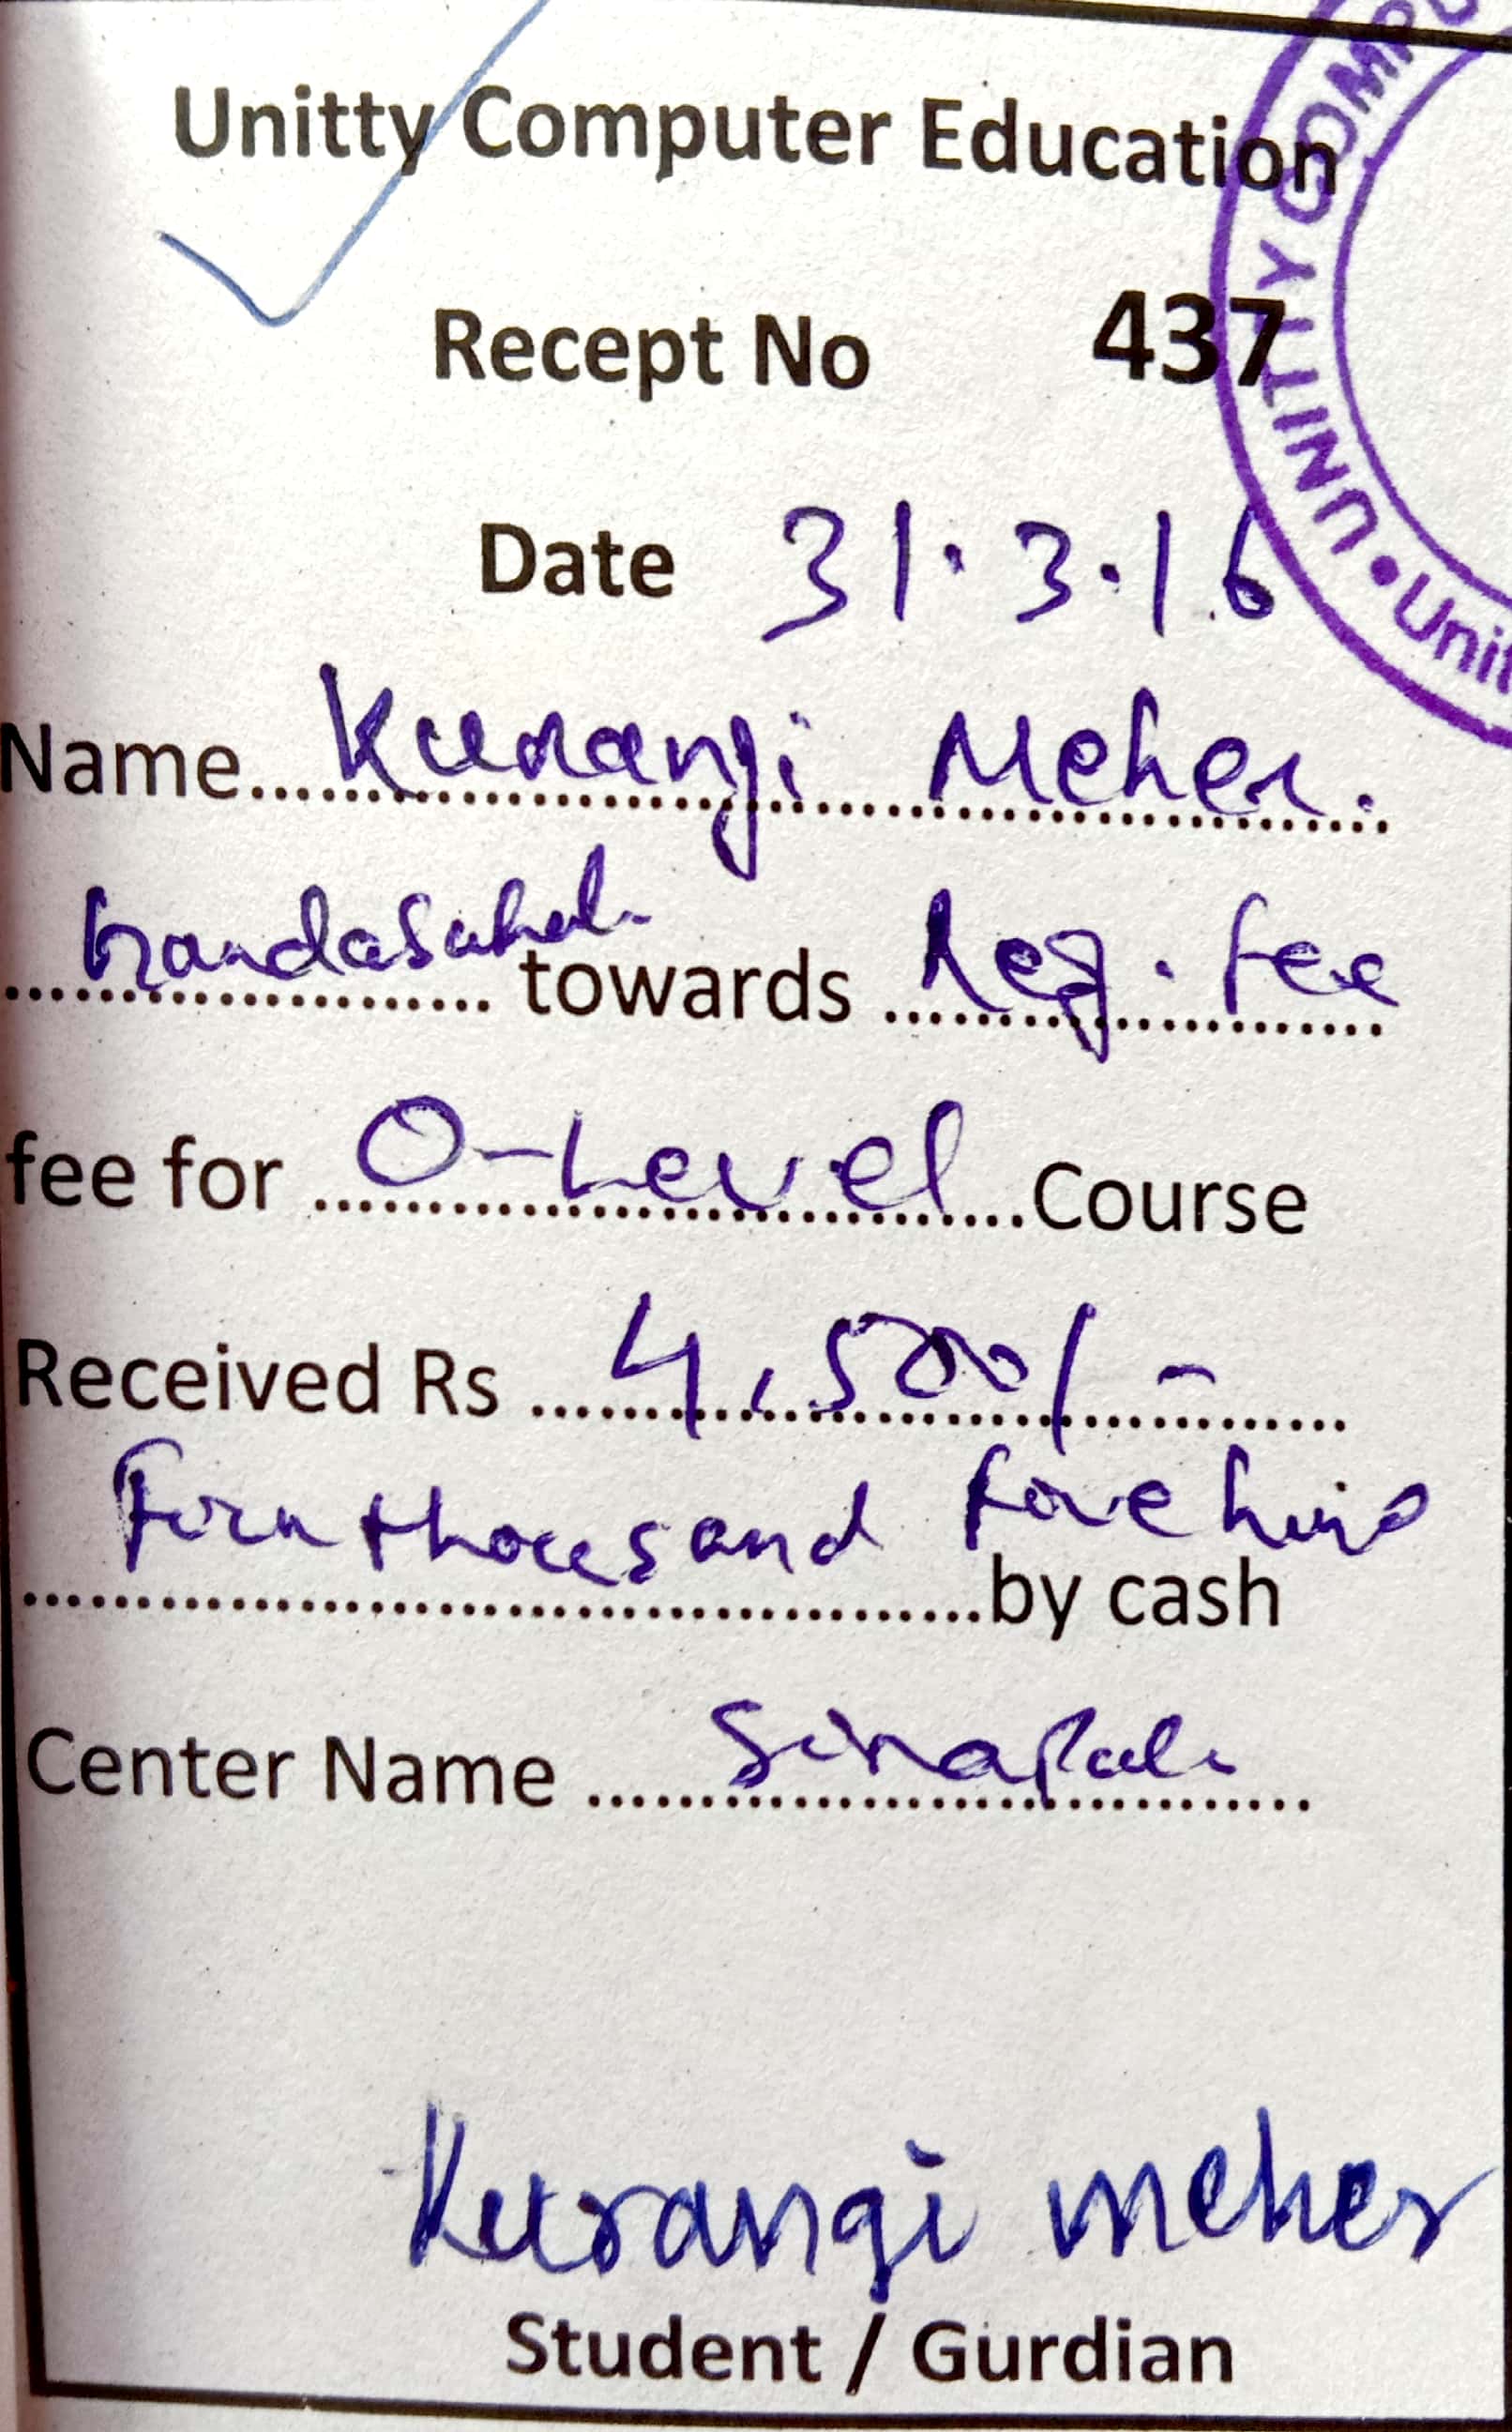 Unitty Computer Education
Recept No 437
Date 31.3.16
Name...Kurangi Meher.
......... towards Reg. fee
fee for ...O-Level...Course
Received Rs ...4,500/-
Four thousand five hund
...by cash
Center Name ...Sinapali
Kurangi meher
Student / Gurdian
UNITTY COMPU
• Unit